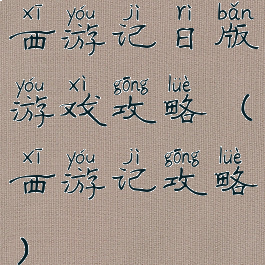 xī yóu jì rì bǎn
西游记日版
yóu xì gōng lüè
游戏攻略（
xī yóu jì gōng lüè
西游记攻略
）